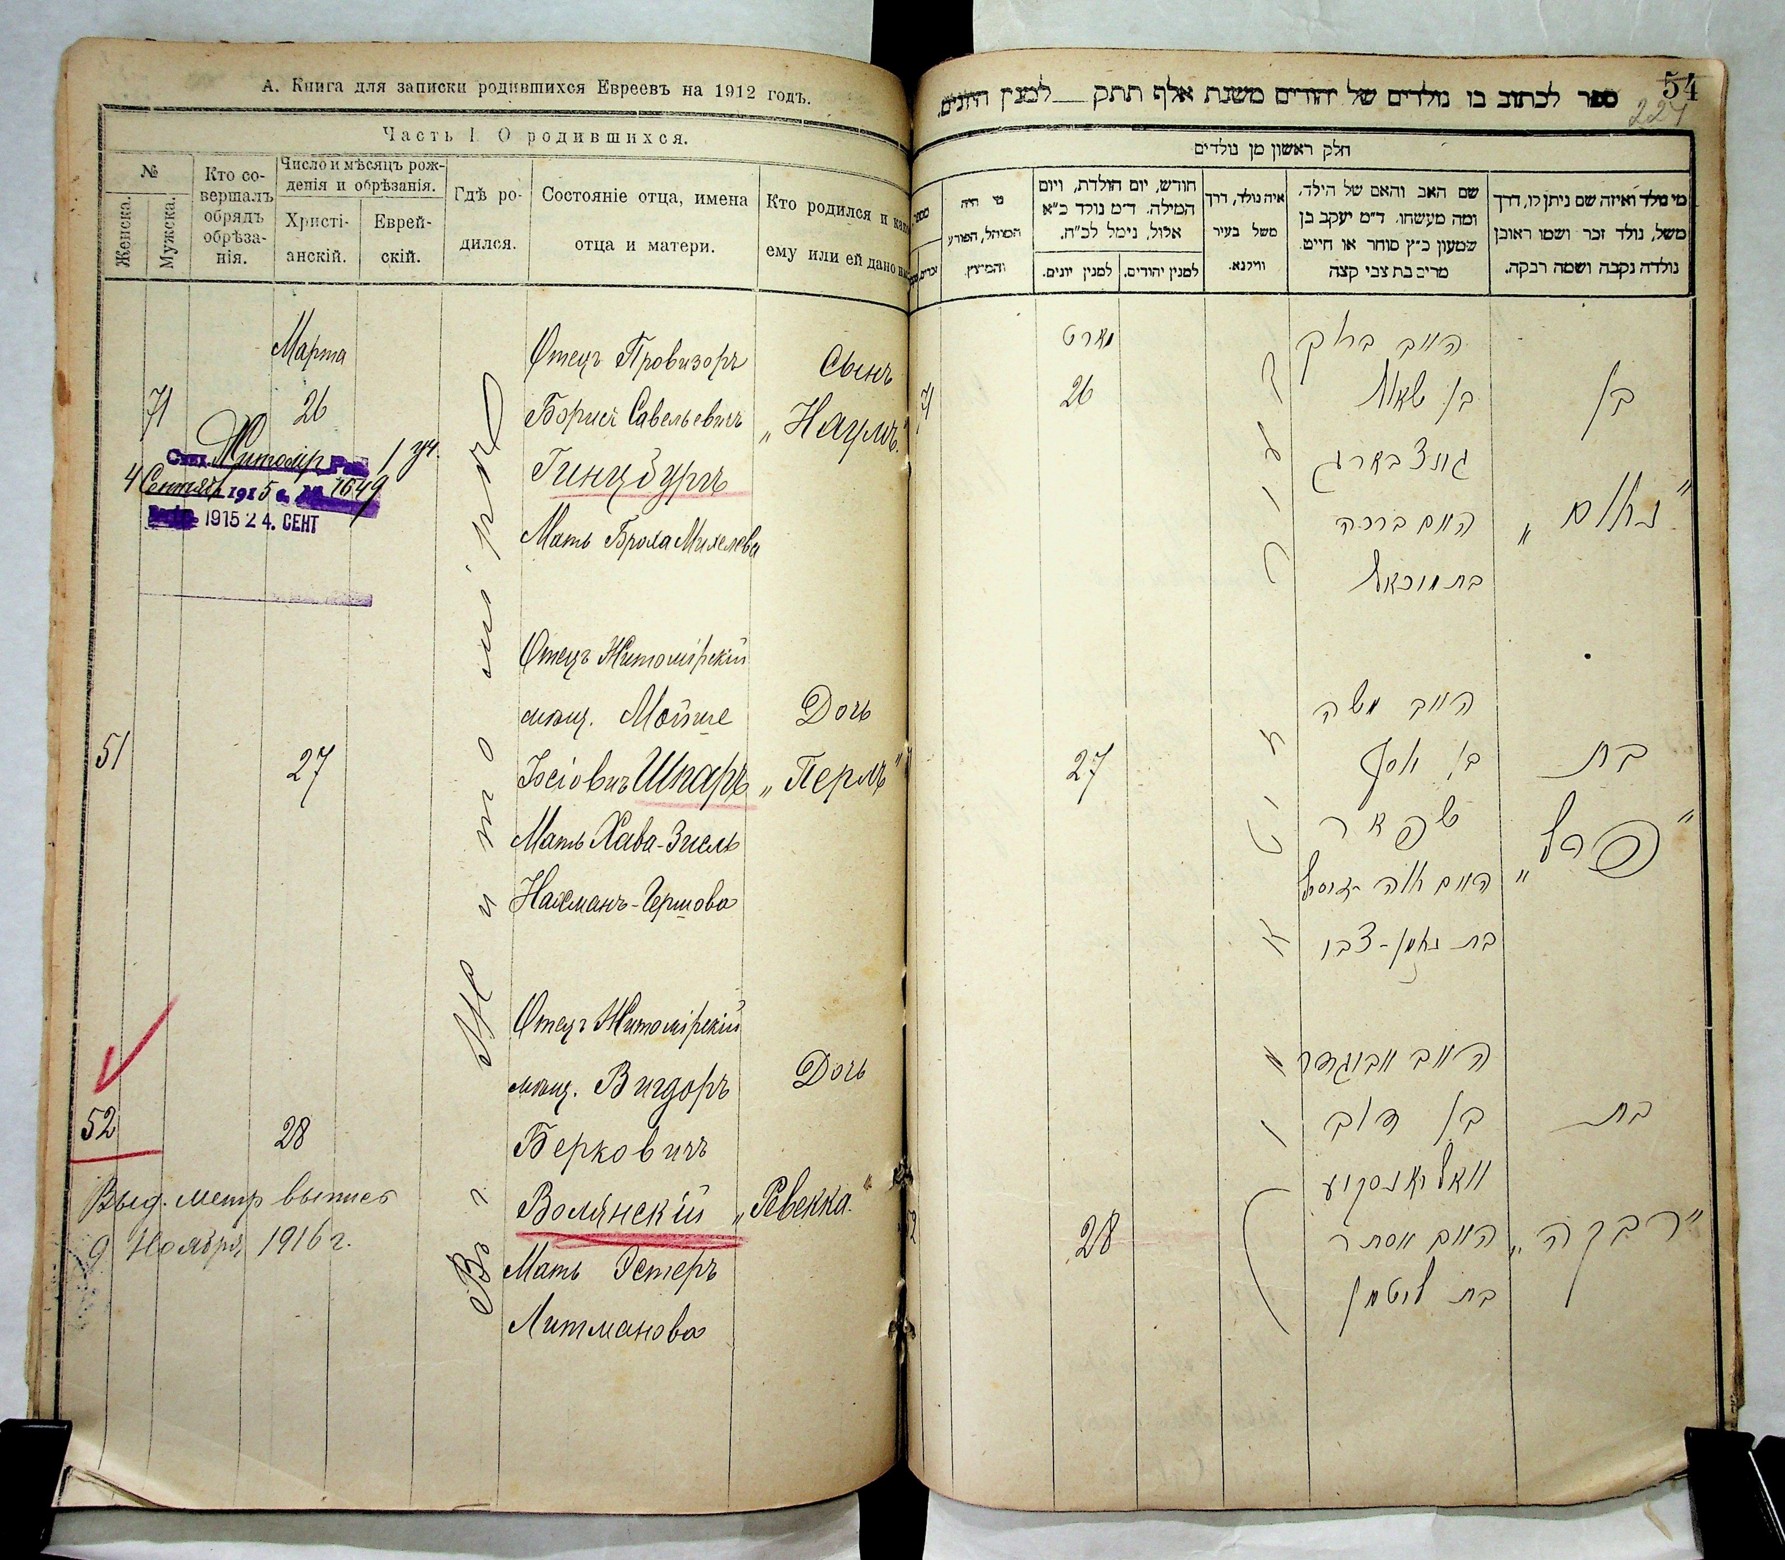 А. Книга для записки родившихся Евреевъ на 1912 годъ.
Часть I. О родившихся.
№
Женска.
Мужска.
Кто со-
вершалъ
обрядъ
обрѣза-
нія.
Число и мѣсяцъ рож-
денія и обрѣзанія.
Христі-
анскій.
Еврей-
скій.
Гдѣ ро-
дился.
Состояніе отца, имена
отца и матери.
Кто родился и
ему или ей дано
Марта
71
26
Житомір 1 уч.
4 Сентяб 1915 г. № 1649
1915 24. СЕНТ
Въ г. Житомірѣ
Отецъ Провизоръ
Борисъ Савельевичъ
Гинцбургъ
Мать Броха Михелева
Сынъ
„Наумъ.“
51
27
Отецъ Житомірскій
мѣщ. Мойше
Іосіовичъ Шпаръ
Мать Хава-Зисль
Нахманъ-Гершова
Дочь
„Перль“
52
28
Выд. метр выпись
9 Ноября 1916 г.
Отецъ Житомірскій
мѣщ. Вигдоръ
Берковичъ
Волянскій
Мать Эстеръ
Литманова
Дочь
„Ревекка.“
54
227
ספר לכתוב בו נולדים של יהודים משנת אלף תתק __ למנין היונים.
חלק ראשון מן נולדים
מי נולד ואיזה שם ניתן לו, דרך
משל, נולד זכר ושמו ראובן
נולדה נקבה ושמה רבקה.
שם האב והאם של הילד,
ומה מעשהו. ד״מ יעקב בן
שמעון כ״ץ סוחר או חייט
מרים בת צבי קצה
איה נולד, דרך
משל בעיר
ווילנא.
חודש, יום הולדת, ויום
המילה. ד״מ נולד כ״א
אלול, נימל לכ״ח.
למנין יהודים.
למנין יונים.
מי היה
המוהל, הפורע
והמוצץ.
מארט
71
26
האב ברוך
בן שאול
גינצבארג
האם ברכה
בת מיכאל
בן
„נאום“
27
האב משה
בן יוסף
שפאר
האם חוה זיסל
בת נחמן-צבי
בת
„פרל“
52
28
האב אביגדור
בן דוב
וואליאנסקיע
האם אסתר
בת ליטמן
בת
„רבקה“